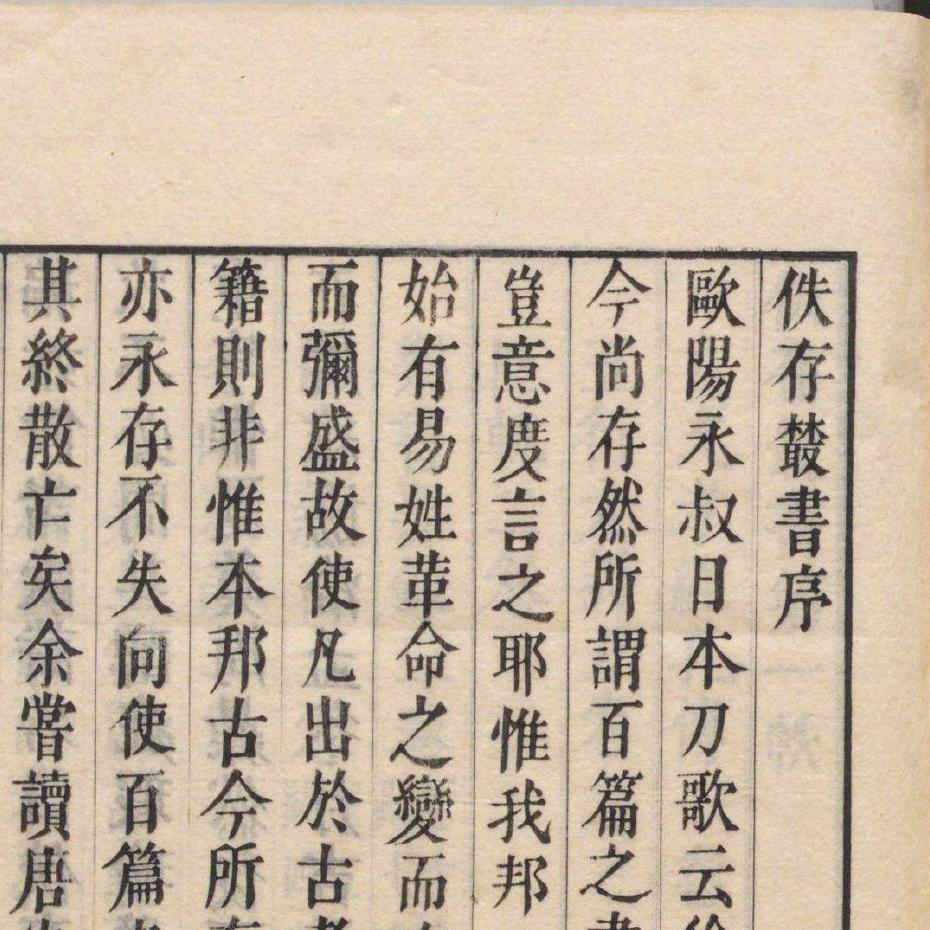 佚存叢書序
歐陽永叔日本刀歌云
今尚存然所謂百篇之
豈意度言之耶惟我邦
始有易姓革命之變而
而彌盛故使凡出於古
籍則非惟本邦古今所
亦永存不失向使百篇
其終散亡矣余嘗讀唐